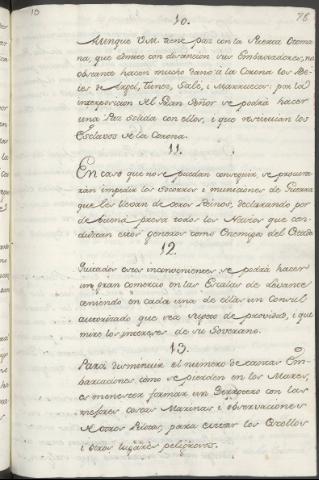 10.
Aunque V.M. tiene paz con la Puerta Otoma
na, que admite con distincion sus Embaxadores, no
obstante hacen mucho daño à la Corona los Be
ies de Argel, Tunes, Salè, i Marruecos: por la
interposicion del Gran Señor se podrà hacer
una Paz solida con ellos, i que restituian los
Esclavos de la Corona.
11.
En caso que no se puedan conseguir, se procura
ràn impedir los socorros i municiones de Guerra
que les llevan de otros Reinos, declarando por
de buena presa todos los Navios que con
duzcan estos generos como Enemigos del Estado
12.
Quitados estos inconvenientes se podrà hacer
un gran comercio en las Escalas de Levante
teniendo en cada una de ellas un Consul
autorizado que sea sugeto de providad, i que
mire los intereses de su Soverano.
13.
Para disminuir el numero de tantas Em
barcaciones como se pierden en los Mares,
es menester formar un Derrotero con las
mejores cartas Marinas i observaciones
de otros Pilotos, para evitar los Escollos
i otros lugares peligrosos.